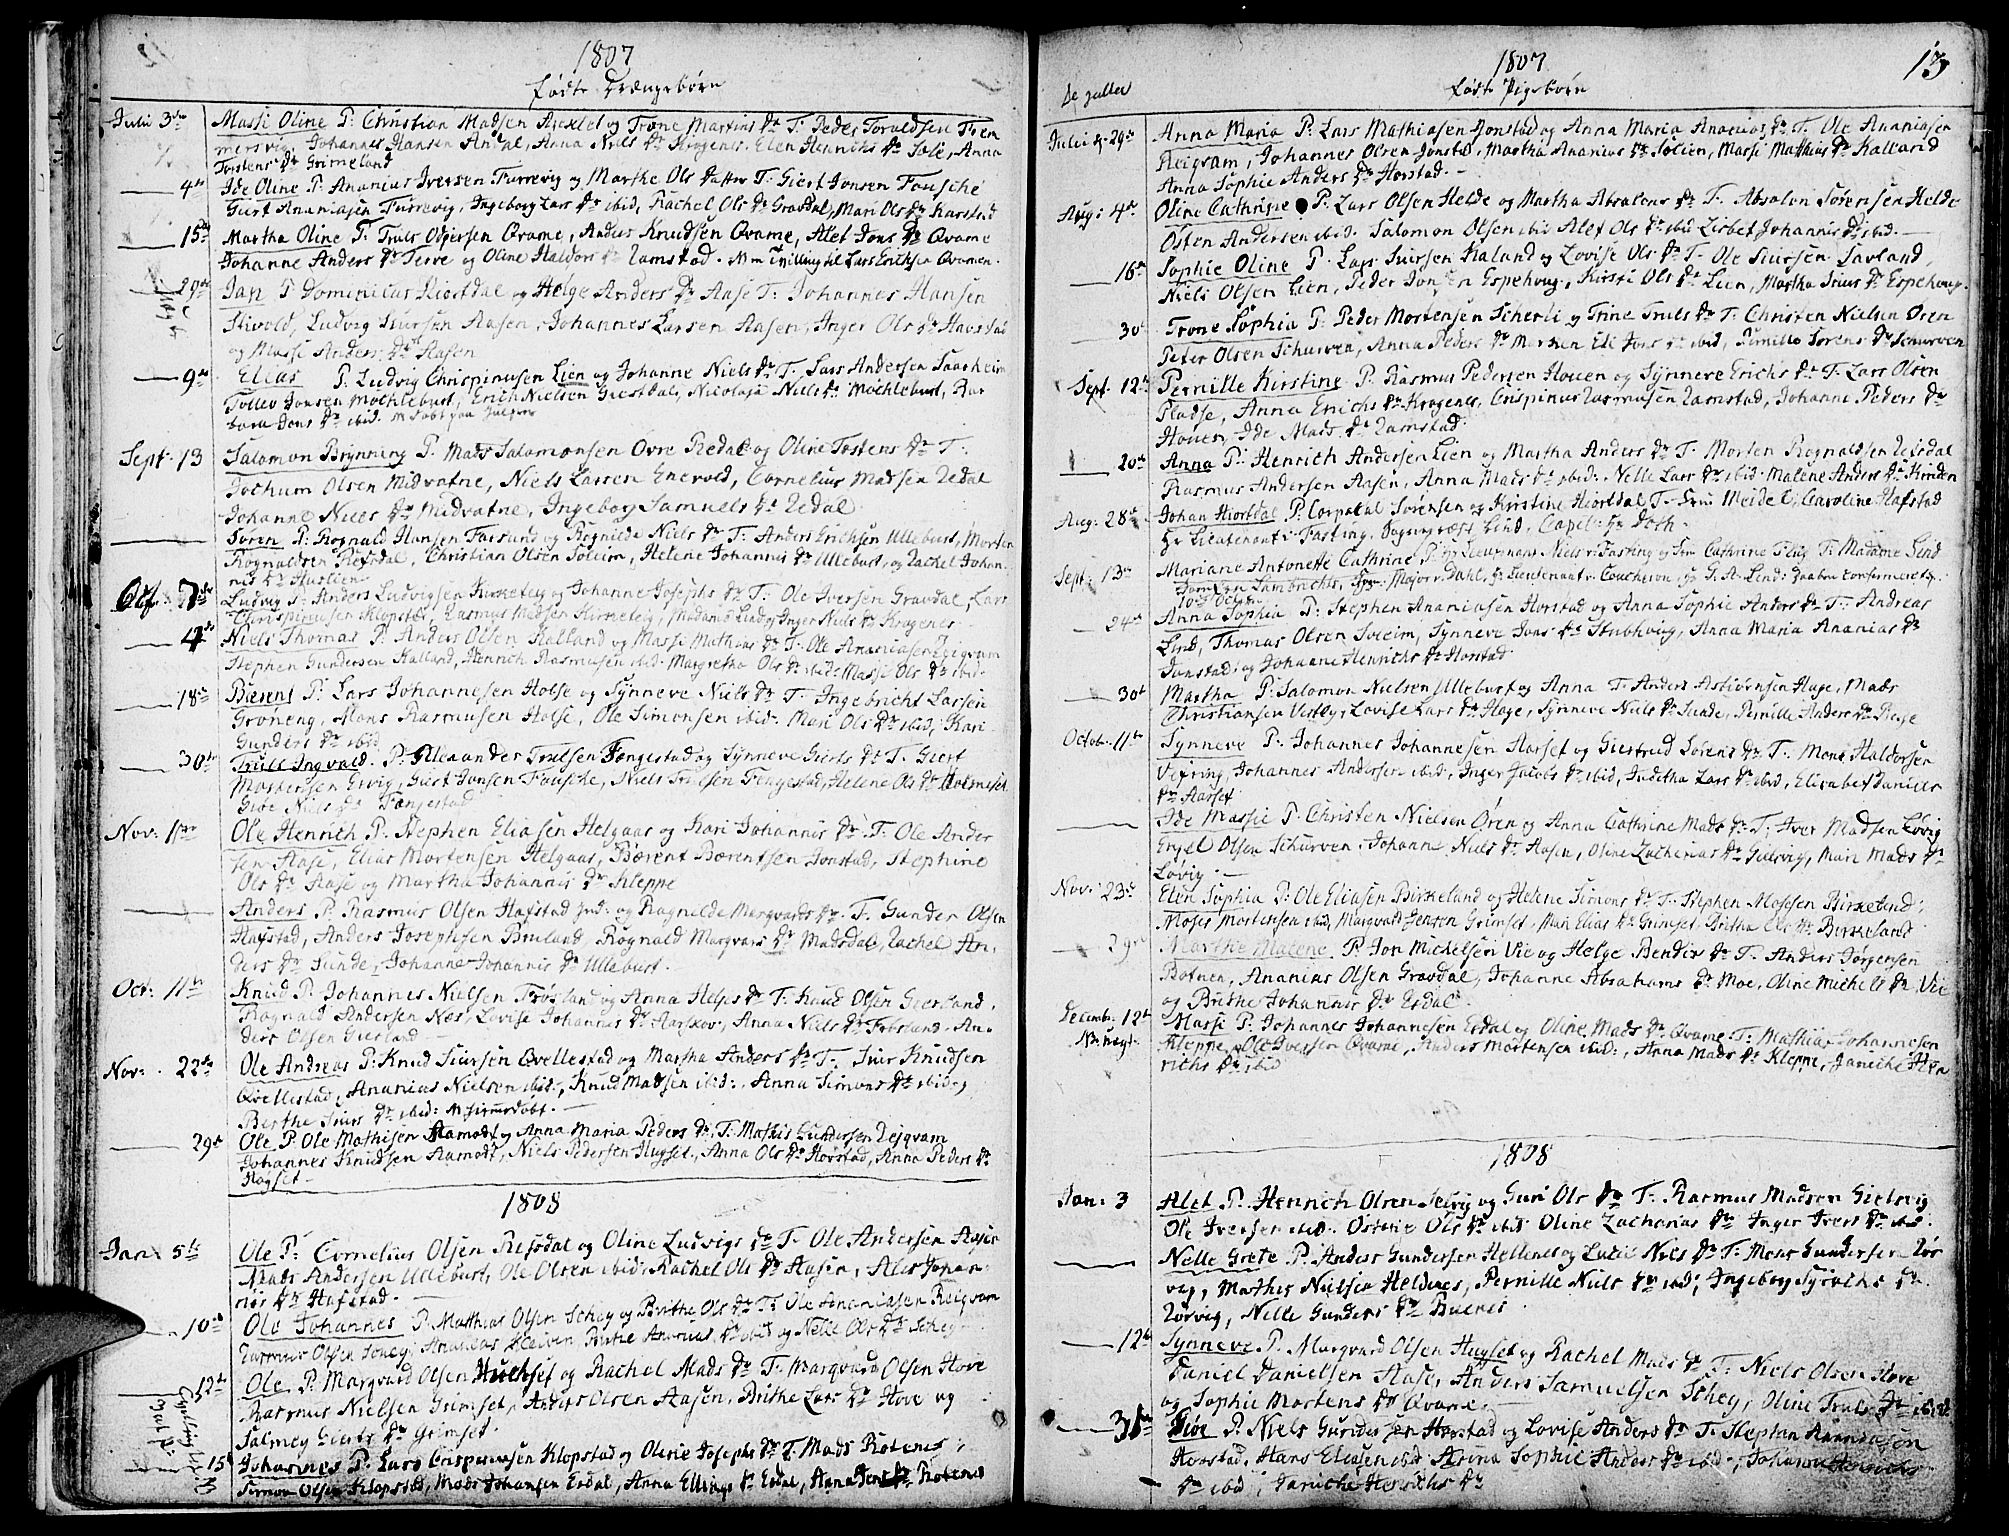 1807
fødte Drængebørn
Juli 3de Massi Oline P. Christian Madsen og Trone Martins Dr T. Peder Torvildsen
Johannes Hansen Andal, Anna Niels Dr Krogenes, Elen Henrichs Dr Solie, Anna
Torstens Dr Grimeland
4de Ide Oline P. Ananias Iversen Furrevig og Marthe Ols Datter T. Giert Jonsen Fausche
Giert Ananiasen Furrevig, Ingeborg Lars Dr ibid, Rachel Ols Dr Gravdal, Mari Ols Dr Harstad
15de Martha Oline P. Truls Ottersen Qvame, Anders Knudsen Qvame, Alet Jons Dr Qvame
Johanne Anders Dr Terre og Oline Haldors Dr Ramstad. NB Tvilling til Lars Erichsen Qvamen
29de Jan P Dominicus Hiortdal og Helge Anders Dr Aase T. Johannes Hansen
Stivold, Ludvig Siursen Aasen, Johannes Larsen Aasen, Inger Ols Dr Havstad
og Massi Anders Dr Aasen
9de Elias P. Ludvig Chrispinusen Lien og Johanne Niels Dr T. Lars Andersen Saarheim
Tollev Jonsen Mochlebust, Erich Nielsen Giestdal, Nicolaja Niels Dr Mochlebust, Bar
bara Jons Dr ibid.
Sept: 13 Salomon Brynning P. Mads Salomonsen Øvre Redal og Oline Tostens Dr T.
Jochum Olsen Midvatne, Niels Larsen Enevold, Cornelius Madsen Redal
Johanne Niels Dr Midvatne, Ingeborg Samuels Dr Redal
Søren P. Rognald Hansen Farsund og Rognilde Niels Dr T. Anders Erichsen Ullebust, Morten
Rognaldsen Refsdal, Christian Olsen Soleim, Helene Johannis Dr Ullebust, og Rachel Johan
nis Dr Huslien
Oct: Ludvig P. Anders Ludvigsen Kirketeig og Johanne Josephs Dr T. Ole Iversen Gravdal, Lars
Chrispinusen Klopstad, Rasmus Madsen Kirketeig, Madame Lind og Inger Niels Dr Krogenes
4de Niels Thomas P. Anders Olsen Kalland og Massi Mathias Dr T. Ole Ananiasen Reigram
Stephen Gundersen Kalland, Henrich Rasmusen ibid. Margretha Ols Dr ibid. Massi Ols Dr ibid.
18de Bærent P. Lars Johannesen Holse og Synneve Niels Dr T. Ingebricht Larsen
Groneng, Mons Rasmusen Holse, Ole Simonsen ibid. Mari Ols Dr ibid, Kari
Gunders Dr ibid
30de Truls Ingvald P. Alexander Trulsen Fængestad og Synneve Gierts Dr T. Giert
Mortensen Ervig, Giert Jonsen Fausche, Niels Trulsen Fængestad, Helene Ols Dr
Giøe Niels Dr Fængestad
Nov: 1ste Ole Henrich P. Stephen Eliasen Helgaas og Kari Johannis Dr T. Ole Ander
sen Aase, Elias Mortensen Helgaas, Bærent Bærentsen Jonstad, Stephine
Ols Dr Aase og Martha Johannis Dr Kleppe
Anders P. Rasmus Olsen Hafstad ind: og Ragnilde Margvards Dr T. Gunder Olsen
Hafstad, Anders Josephsen Bruland, Rognald Margvars Dr Madsdal, Rachel An
ders Dr Sunde, Johanne Johannis Dr Ullebust.
Oct: 11te Knud P. Johannes Nielsen Frøsland og Anna Helges Dr T. Knud Olsen Gierland
Rognald Andersen Nes, Lovise Johannes Dr Aarskov, Anna Niels Dr Frøsland, An
ders Olsen Gierland
Nov: 22de Ole Andreas P. Knud Siursen Qvellestad og Martha Anders Dr T. Siur Knudsen
Qvellestad, Ananias Nielsen ibid., Knud Madsen ibid., Anna Simons Dr ibid og
Berthe Siurs Dr ibid: NB hiemedøbt.
29de Ole P. Ole Mathisen Aamodt og Anna Maria Peders Dr T. Mathis Gundersen Rejgram
Johannes Knudsen Aamodt, Niels Pedersen Hugset, Anna Ols Dr Horstad, Anna Peders Dr
Hogset
1808
Jan: 5te Ole P. Cornelius Olsen Refsdal og Oline Ludvigs Dr T. Ole Andersen Aasen
Mads Andersen Ullebust, Ole Olsen ibid, Rachel Ols Dr Aasen, Alet Johan
nis Dr Hafstad.
10de Ole Johannes P. Matthias Olsen Schey og Brithe Ols Dr T. Ole Ananiasen Reigram
Rasmus Olsen Schey, Ananias Kleiven, Brithe Ananias Dr ibid og Nelle Ols Dr Schey
12te Ole P. Margvard Olsen Hugset og Rachel Mads Dr T. Margvard Olsen Hove
Rasmus Nielsen Grimset, Anders Olsen Aasen, Brithe Lars Dr Hove og
Salmey Gierts Dr Grimset
15de Johannes P. Lars Crispinusen Klopstad og Oline Josephs Dr T. Mads Rotenes,
Simon Olsen Klopstad, Mads Johansen Erdal, Anna Ellings Dr Erdal, Anna Jens Dr Rotenes
1807 13
De Juller fødte Pigebørn
Juli d: 29de Anna Maria P. Lars Mathiasen Jonstad og Anna Maria Ananias Dr T. Ole Ananiasen
Reigram, Johannes Olsen Jonstad, Martha Ananias Dr Solien, Massi Matthias Dr Kalland
Anna Sophie Anders Dr Horstad.
Aug: 4de Oline Cathrine P. Lars Olsen Helde og Martha Absalons Dr T. Absalon Sørensen Helde
Østen Andersen ibid. Salomon Olsen ibid Alet Ols Dr ibid Lisbet Johannis Dr ibid.
16de Sophie Oline P. Lars Siursen Kaland og Lovise Ols Dr T. Ole Siursen Savland,
Niels Olsen Lien, Peder Jonsen Espehoug, Kirsti Ols Dr Lien, Martha Siurs Dr Espehoug.
30de Trone Sophia P. Peder Mortensen Scherli og Trine Truls Dr T. Christen Nielsen Øren
Peter Olsen Schurven, Anna Peders Dr Morken Eli Jons Dr ibid, Pernille Sørens Dr Schurven
Sept: 12te Pernille Kirstine P. Rasmus Pedersen Houen og Synneve Erichs Dr T. Lars Olsen
Pladse, Anna Erichs Dr Krogenes, Crispinus Rasmusen Ramstad, Johanne Peders Dr
Houen, Ide Mads Dr Ramstad.
20de Anna P. Henrich Andersen Lien og Martha Anders Dr T. Morten Rognaldsen Refsdal
Rasmus Andersen Aasen, Anna Mads Dr ibid. Nelle Lars Dr ibid. Malene Anders Dr Kinden
Aug: 28de Johan Hiortdal P. Corporal Sørensen og Kirstine Hiortdal T. Fru Meidel, Caroline Hafstad
Hr Lieutenant v. Fasting, Lind, Capel: Hr Both
Sept: 13de Mariane Antonette Cathrine P. Hr Lieutenant Niels v. Fasting og Fru Cathrine T. Madame Lind
Jomfru Lambrechts, Major v. Dahl, Hr Lieutenant v. Coucheron og G. A. Lind: Daaben confirmeret
10de Octbr
24de Anna Sophia P. Stephen Ananiasen Horstad og Anna Sophie Anders Dr T. Andreas
Lind, Thomas Olsen Soleim, Synneve Jons Dr Stubhoug, Anna Maria Ananias Dr
Jonstad og Johanne Henrichs Dr Horstad
30de Martha P. Salomon Nielsen Ullebust og Anna T. Anders Astiørnsen Hage, Mads
Christiansen Vestby, Lovise Lars Dr Hage, Synneve Niels Dr Sunde, Pernille Anders Dr
Octob: 11te Synneve P. Johannes Johannesen Aarset og Giertrud Sørens Dr T. Mons Haldorsen
Vefring, Johannes Andersen ibid, Inger Jacobs Dr ibid, Juditha Lars Dr ibid, Elisabet Daniels
Dr Aarset
Ide Massie P. Christen Nielsen Øren og Anna Cathrine Mads Dr T. Iver Madsen Løvig
Engel Olsen Schurven, Johanne Niels Dr Aasen, Oline Zacharias Dr Gielsvig, Mari Mads Dr
Løvig
Nov: 23de Elen Sophia P. Ole Eliasen Birkeland og Helene Simons Dr T. Stephen Mosesen Birkeland,
Moses Mortensen ibid, Margvard Jensen Grimset, Mari Elias Dr Grimset, Brithe Ols Dr Birkeland
29de Marthe Malene P. Jon Michelsen Vie og Helge Bendix Dr T. Anders Jørgensen
Botnen, Ananias Olsen Gravdal, Johanne Abrahams Dr Moe, Oline Michels Dr Vie
og Brithe Johannis Dr Erdal.
Decemb: 12te Massi P. Johannes Johannesen Erdal og Oline Mads Dr Qvame T. Mathias Johannesen
NB: uægt. Kleppe, Ole Iversen Qvame, Anders Mortensen ibid:, Anna Mads Dr Kleppe, Janiche Hen
richs Dr ibid
1808
Jan: 3 Alet P. Henrich Olsen Selvig og Guri Ols Dr T. Rasmus Madsen Gielsvig
Ole Iversen ibid. Østine Ols Dr ibid. Oline Zacharias Dr Inger Ivers Dr ibid.
Nelle Grete P. Anders Gundersen Hellenes og Lucie Niels Dr T. Mons Gundersen Rør
vig, Mathes Nielsen Heldenes, Pernille Niels Dr ibid, Ingeborg Dr
Rørvig, Nelle Gunders Dr Buenes
12te Synneve P. Margvard Olsen Hugset og Rachel Mads Dr T. Niels Olsen Hove
Daniel Danielsen Aase, Anders Samuelsen Schey, Oline Truls Dr ibid
og Sophie Mortens Dr Qvame.
31te Giøe P. Niels Gundersen Horstad og Lovise Anders Dr T. Stephan Ananiasen
Horstad, Hans Eliasen ibid Anna Sophie Anders Dr ibid, Johanne Henrichs
Dr ibid, Janiche Henrichs Dr